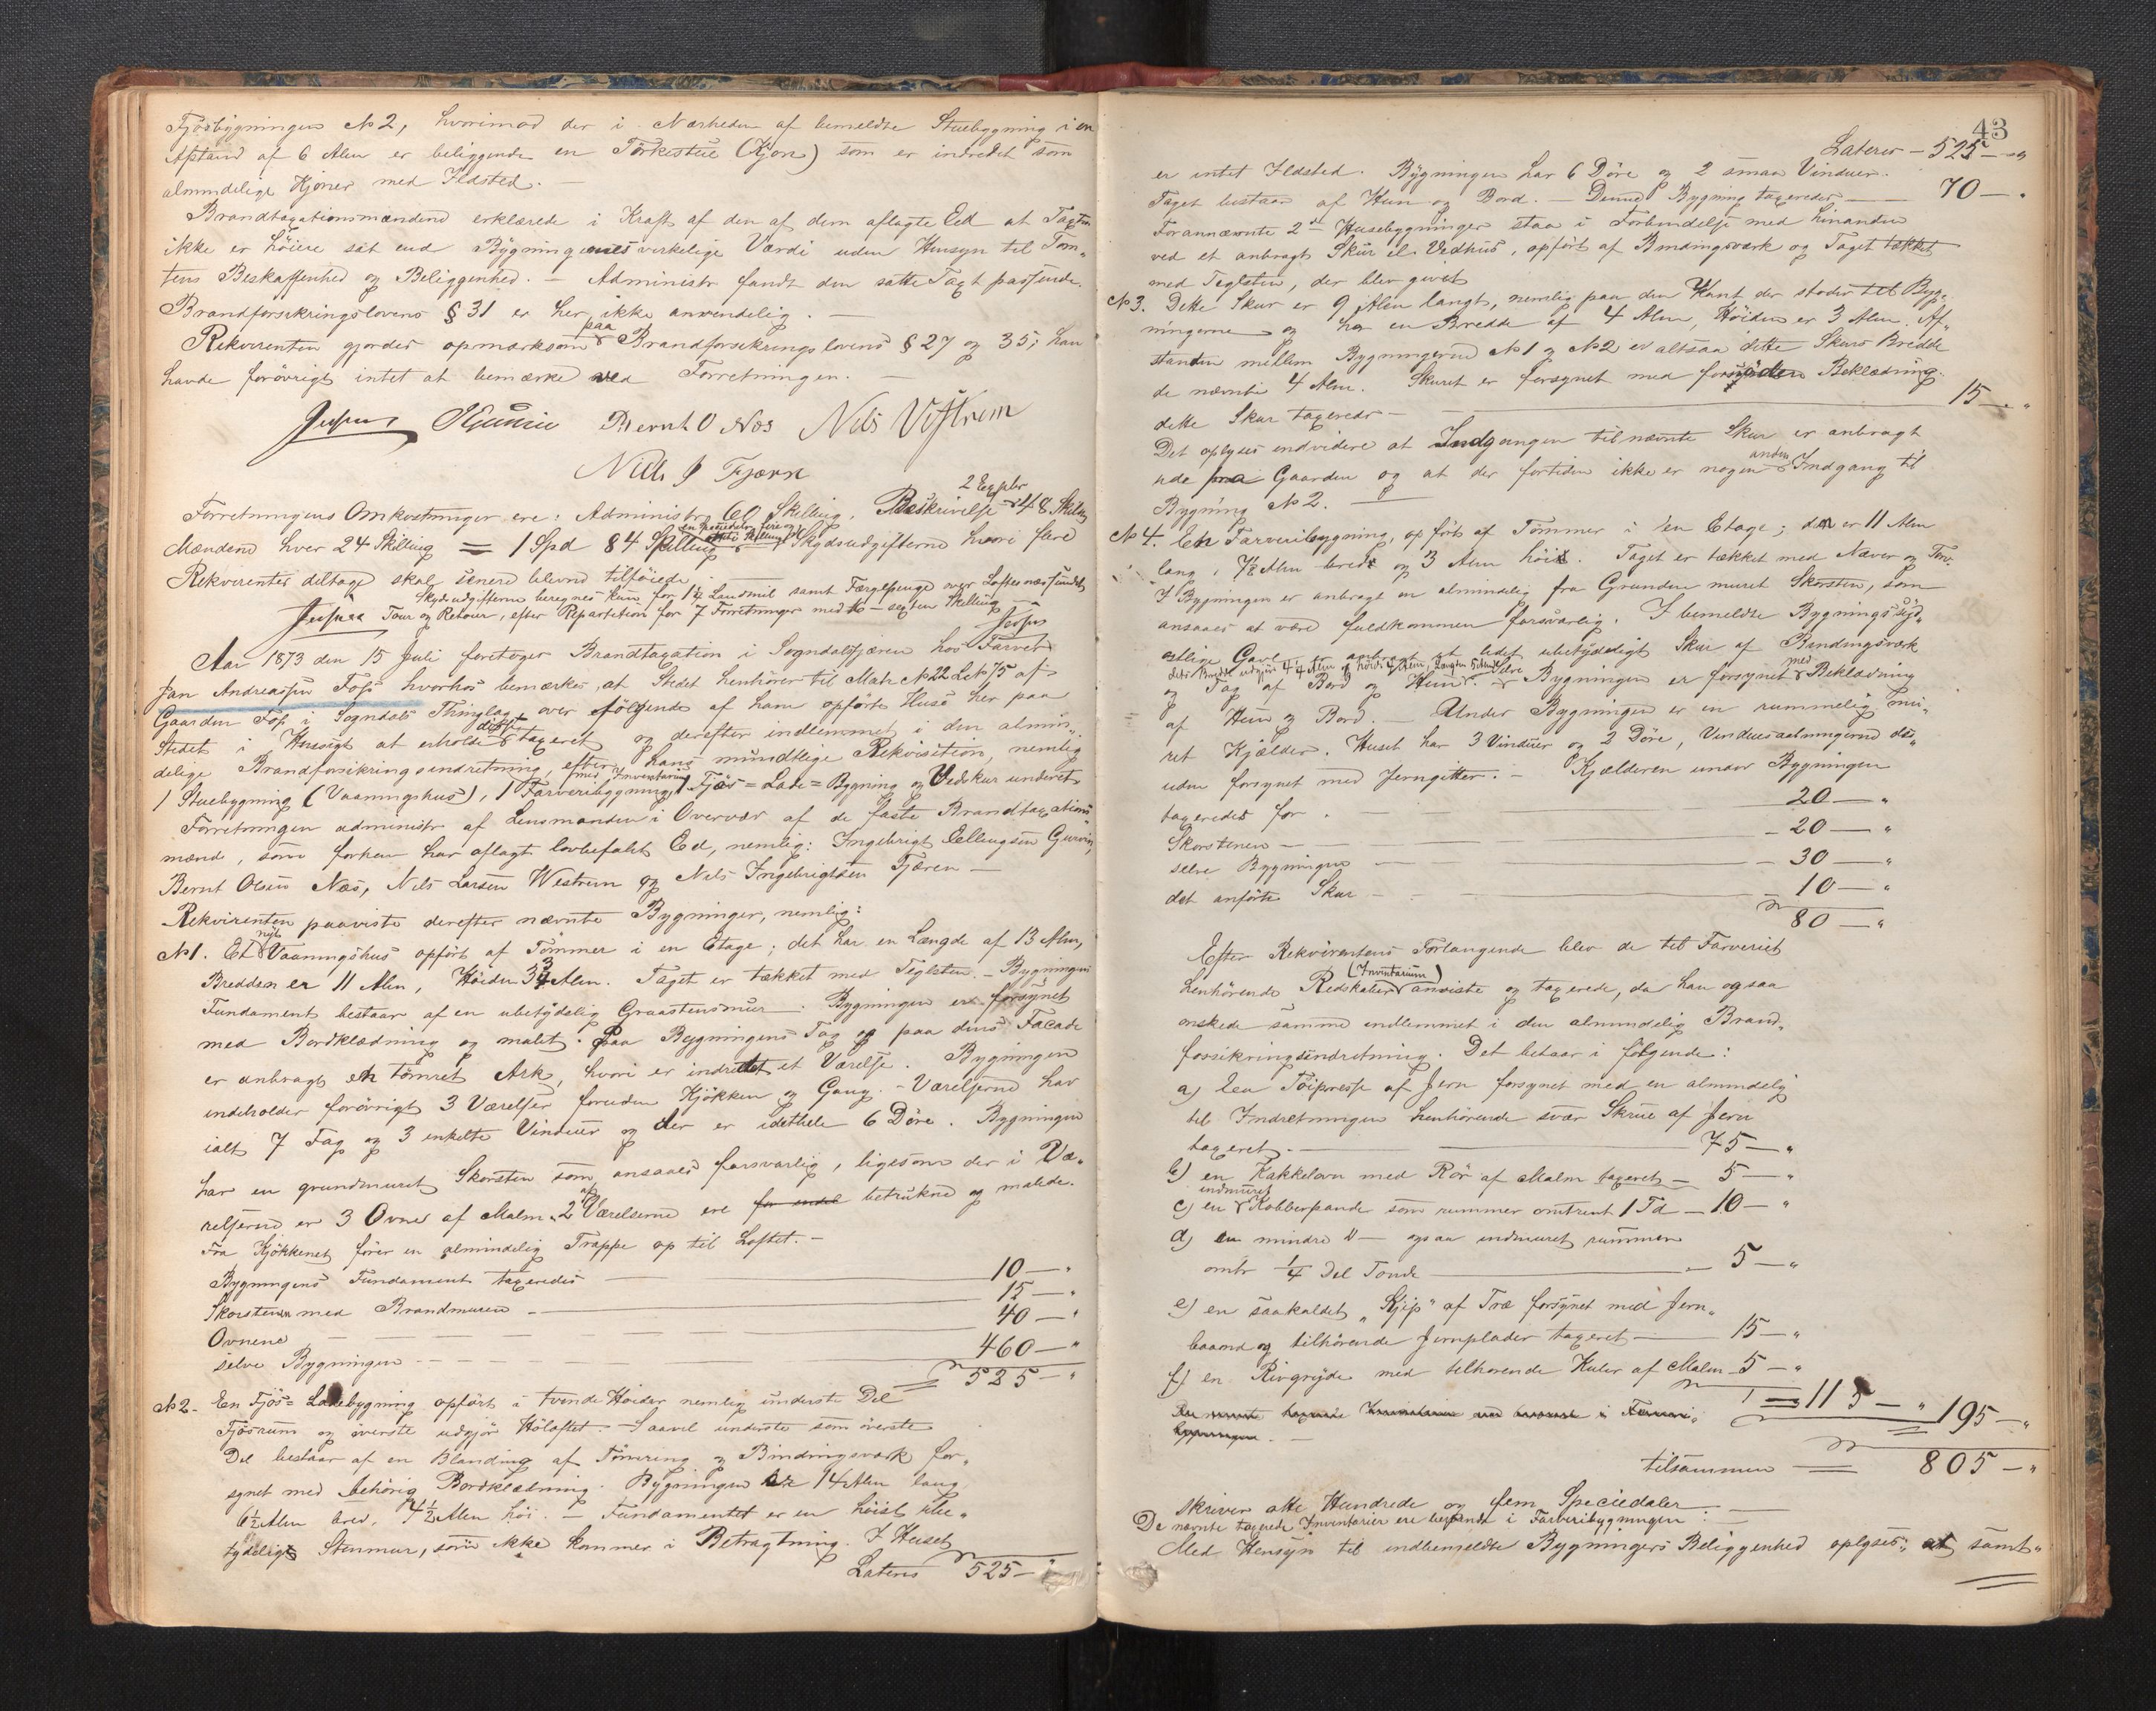 Fjøsbygningen No 2, hvorimod der i Nærheden af bemeldte Stuebygning i en
Afstand af 6 Alen er beliggende en Tørkestue (Kjøn) som er indredet som
almindelige Kjøner med Ildsted. —
Brandtaxationsmændene erklærede i Kraft af den af dem aflagte Eed at Taxten
ikke er høiere sat end Bygningenes virkelige Værdi uden Hensyn til Tom„
tens Beskaffenhed og Beliggenhed. — Administr fandt den satte Taxt passende.
Brandforsikringslovens § 31 er her ikke anvendelig. —
paa
Rekvirenten gjordes opmærksom Brandforsikringslovens § 27 og 35; han
havde forøvrigt intet at bemærke ved Forretningen. —
Bernt O Næs Nils Vestrem
Nils I Fjæren
2 Expler
Forretningens Omkostninger ere: Administr 60 Skilling. Beskrivelse 48 Skilling
Mændene hver 24 Skilling = 1 Spd 84 Skilling Skydsudgifterne hvori flere
Rekvirenter deltage skal senere blevne tilføiede
Skydsudgifterne beregnes kun for 1½ Landmil samt Færgepenge over Loftesnæssundet
Tour og Retour, efter Repartition for 7 Forretninger med 16 — sexten Skilling
Aar 1873 den 15 Juli foretoges Brandtaxation i Sogndalsfjæren hos Farver
Jan Andreassen Foss hvorhos bemærkes, at Stedet henhører til Matr No 22 Lb No 75 af
Gaarden Foss i Sogndals Thinglag, over følgende af ham opførte Huse her paa
Stedet i Hensigt at erholde disse taxeret og derefter indlemmet i den almin„
delige Brandforsikringsindretning, efter hans mundtlige Rekvisition, nemlig
med Inventarium
1 Stuebygning (Vaaningshus), 1 Farveribygning, 1 Fjøs = Lade = Bygning og Vedskur
Forretningen administr af Lensmanden i Overvær af de faste Brandtaxations„
mænd, som forhen har aflagt lovbefalet Ed, nemlig: Ingebrigt Ellingsen
Bernt Olsen Næs, Nils Larsen Westrem og Nils Ingebrigtsen Fjæren —
Rekvirenten paaviste derefter nævnte Bygninger, nemlig:
nyt
No 1. Et Vaaningshus opført af Tømmer i en Etage; det har en Længde af 13 Alen,
Bredden er 11 Alen, Høiden 3¾ Alen. Taget er tækket med Teglsten. — Bygningens
Fundament bestaar af en ubetydelig Graastensmur. Bygningen er forsynet
med Bordklædning og malet. Paa Bygningens Tag og paa dens Facade
er anbragt en tømret Ark, hvori er indrettet et Værelse. Bygningen
indeholder forøvrigt 3 Værelser foruden Kjøkken og Gang. — Værelserne har
ialt 7 Fag og 3 enkelte Vinduer og der er idethele 6 Døre. Bygningen
har en grundmuret Skorsten som ansaaes forsvarlig, ligesom der i Væ„
relserne er 3 Ovne af Malm. 2 af Værelserne ere for endel betrukne og malede.
Fra Kjøkkenet fører en almindelig Trappe op til Loftet. —
Bygningens Fundament taxeredes — 10 — „
Skorstenen med Brandmuren — 15 — „
Ovnene — 40 — „
selve Bygningen — 460 — „
525 — „
No 2. En Fjøs = Ladebygning opført i tvende Høider nemlig underste Del
Fjøsrum og øverste udgjør Høloftet. — Saavel underste som øverste
Del bestaar af en Blanding af Tømring og Bindingsværk for„
synet med behørig Bordklædning. Bygningen er 14 Alen lang
6½ Alen bred, 4½ Alen høi. — Fundamentet er en høist ube„
tydeligt Stenmur, som ikke kommer i Betragtning. I Huset
Lateris 525 — „
43
Lateris — 525 — „
er intet Ildsted. Bygningen har 6 Døre og 2 smaa Vinduer.
Taget bestaar af Hun og Bord. — Denne Bygning taxeredes — 70 — „
Forannævnte 2de Husebygninger staa i Forbindelse med hinanden
ved et anbragt Skur el. Vedhus, opført af Bindingsværk og Taget tækket
med Teglsten, der blev givet
No 3. Dette Skur er 9 Alen langt, nemlig paa den Kant der støder til Byg„
ningerne og har en Bredde af 4 Alen, Høiden er 3 Alen. Af„
standen mellem Bygningerne No 1 og No 2 er altsaa dette Skurs Bredde
de nævnte 4 Alen. Skuret er forsynet med fornøden Beklædning.
dette Skur taxeredes — 15 — „
Det oplyses endvidere at Indgangen til nævnte Skur er anbragt
anden
ude fra Gaarden og at der fortiden ikke er nogen Indgang til
Bygning No 2. —
No 4. En Farveribygning, opført af Tømmer i en Etage; den er 11 Alen
lang, 7½ Alen bred og 3 Alen høi. Taget er tækket med Næver og Torv.
I Bygningen er anbragt en almindelig fra Grunden muret Skorsten, som
ansaaes at være fuldkommen forsvarlig. I bemeldte Bygnings syd„
østlige Gavl er anbragt et lidet ubetydeligt Skur af Bindingsværk
dets Bredde udgjør 4¼ Alen og Høide 4 Alen, Længden
med
og Tag af Bord og Hun. — Selve Bygningen er forsynet Beklædning
af Hun og Bord. — Under Bygningen er en rummelig mu„
ret Kjælder. Huset har 3 Vinduer og 2 Døre, Vinduesaabningerne des„
uden forsynet med Jerngitter. — Kjælderen under Bygningen
taxeredes for — 20 — „
Skorstenen — 20 — „
selve Bygningen — 30 — „
det anførte Skur — 10 — „
80 — „
Efter Rekvirentens Forlangende blev de til Farveriet
(Inventarium)
henhørende Redskaber anviste og taxerede, da han ogsaa
ønskede samme indlemmet i den almindelig Brand„
forsikringsindretning. Det bestaar i følgende:
a) en Tøipresse af Jern forsynet med en almindelig
til Indretningen henhørende svær Skrue af Jern
taxeret — 75 — „
b) en Kakkelovn med Rør af Malm taxeret — 5 — „
indmuret
c) en Kobberpande som rummer omtrent 1 Td — 10 — „
d) en mindre D — ogsaa indmuret rummer
omtr ¼ Del Tønde — 5 — „
e) en saakaldet „Kjip" af Træ forsynet med Jern„
baand og tilhørende Jernplader taxeret — 15 — „
f) en Rivgryde med tilhørende Kuler af Malm — 5 — „
= 115 — „ 195 — „
tilsammen — 805 — „
skriver otte Hundrede og fem Speciedaler —
De nævnte taxerede Inventarier ere beroende i Farveribygningen —
Med Hensyn til indbemeldte Bygningers Beliggenhed oplyses, at samt„